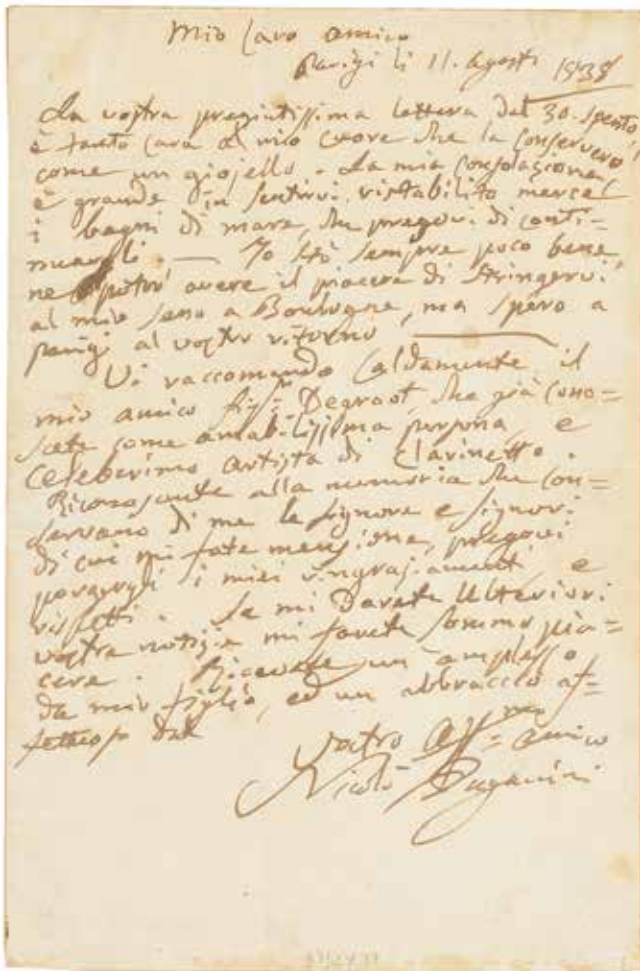 Mio Caro amico
Parigi li 11. Agosti 1838
La vostra pregiatissima lettera del 30. spento,
è tanto cara al mio cuore che la conserverò
come un giojello. La mia consolazione
è grande in sentirvi ristabilito mercè
i bagni di mare, che pregovi di conti=
nuarli. — Io stò sempre poco bene,
ne potrò avere il piacere di stringervi
al mio seno a Boulogne, ma spero a
parigi al vostro ritorno —
Vi raccomando Caldamente il
mio amico Degroot, che già cono=
scete come amabilissima persona, e
Celeberimo artista di Clarinetto.
Riconoscente alla memoria che con=
servano di me le signore e signori
di cui mi fate menzione, pregovi
porgergli i miei ringraziamenti e
rispetti. Se mi darete Ulteriori
vostre notizie mi farete sommo pia=
cere. Ricevete un amplesso
da mio figlio, ed un abbraccio af=
fettuoso dal
Vostro Aff=mo amico
Nicolò Paganini